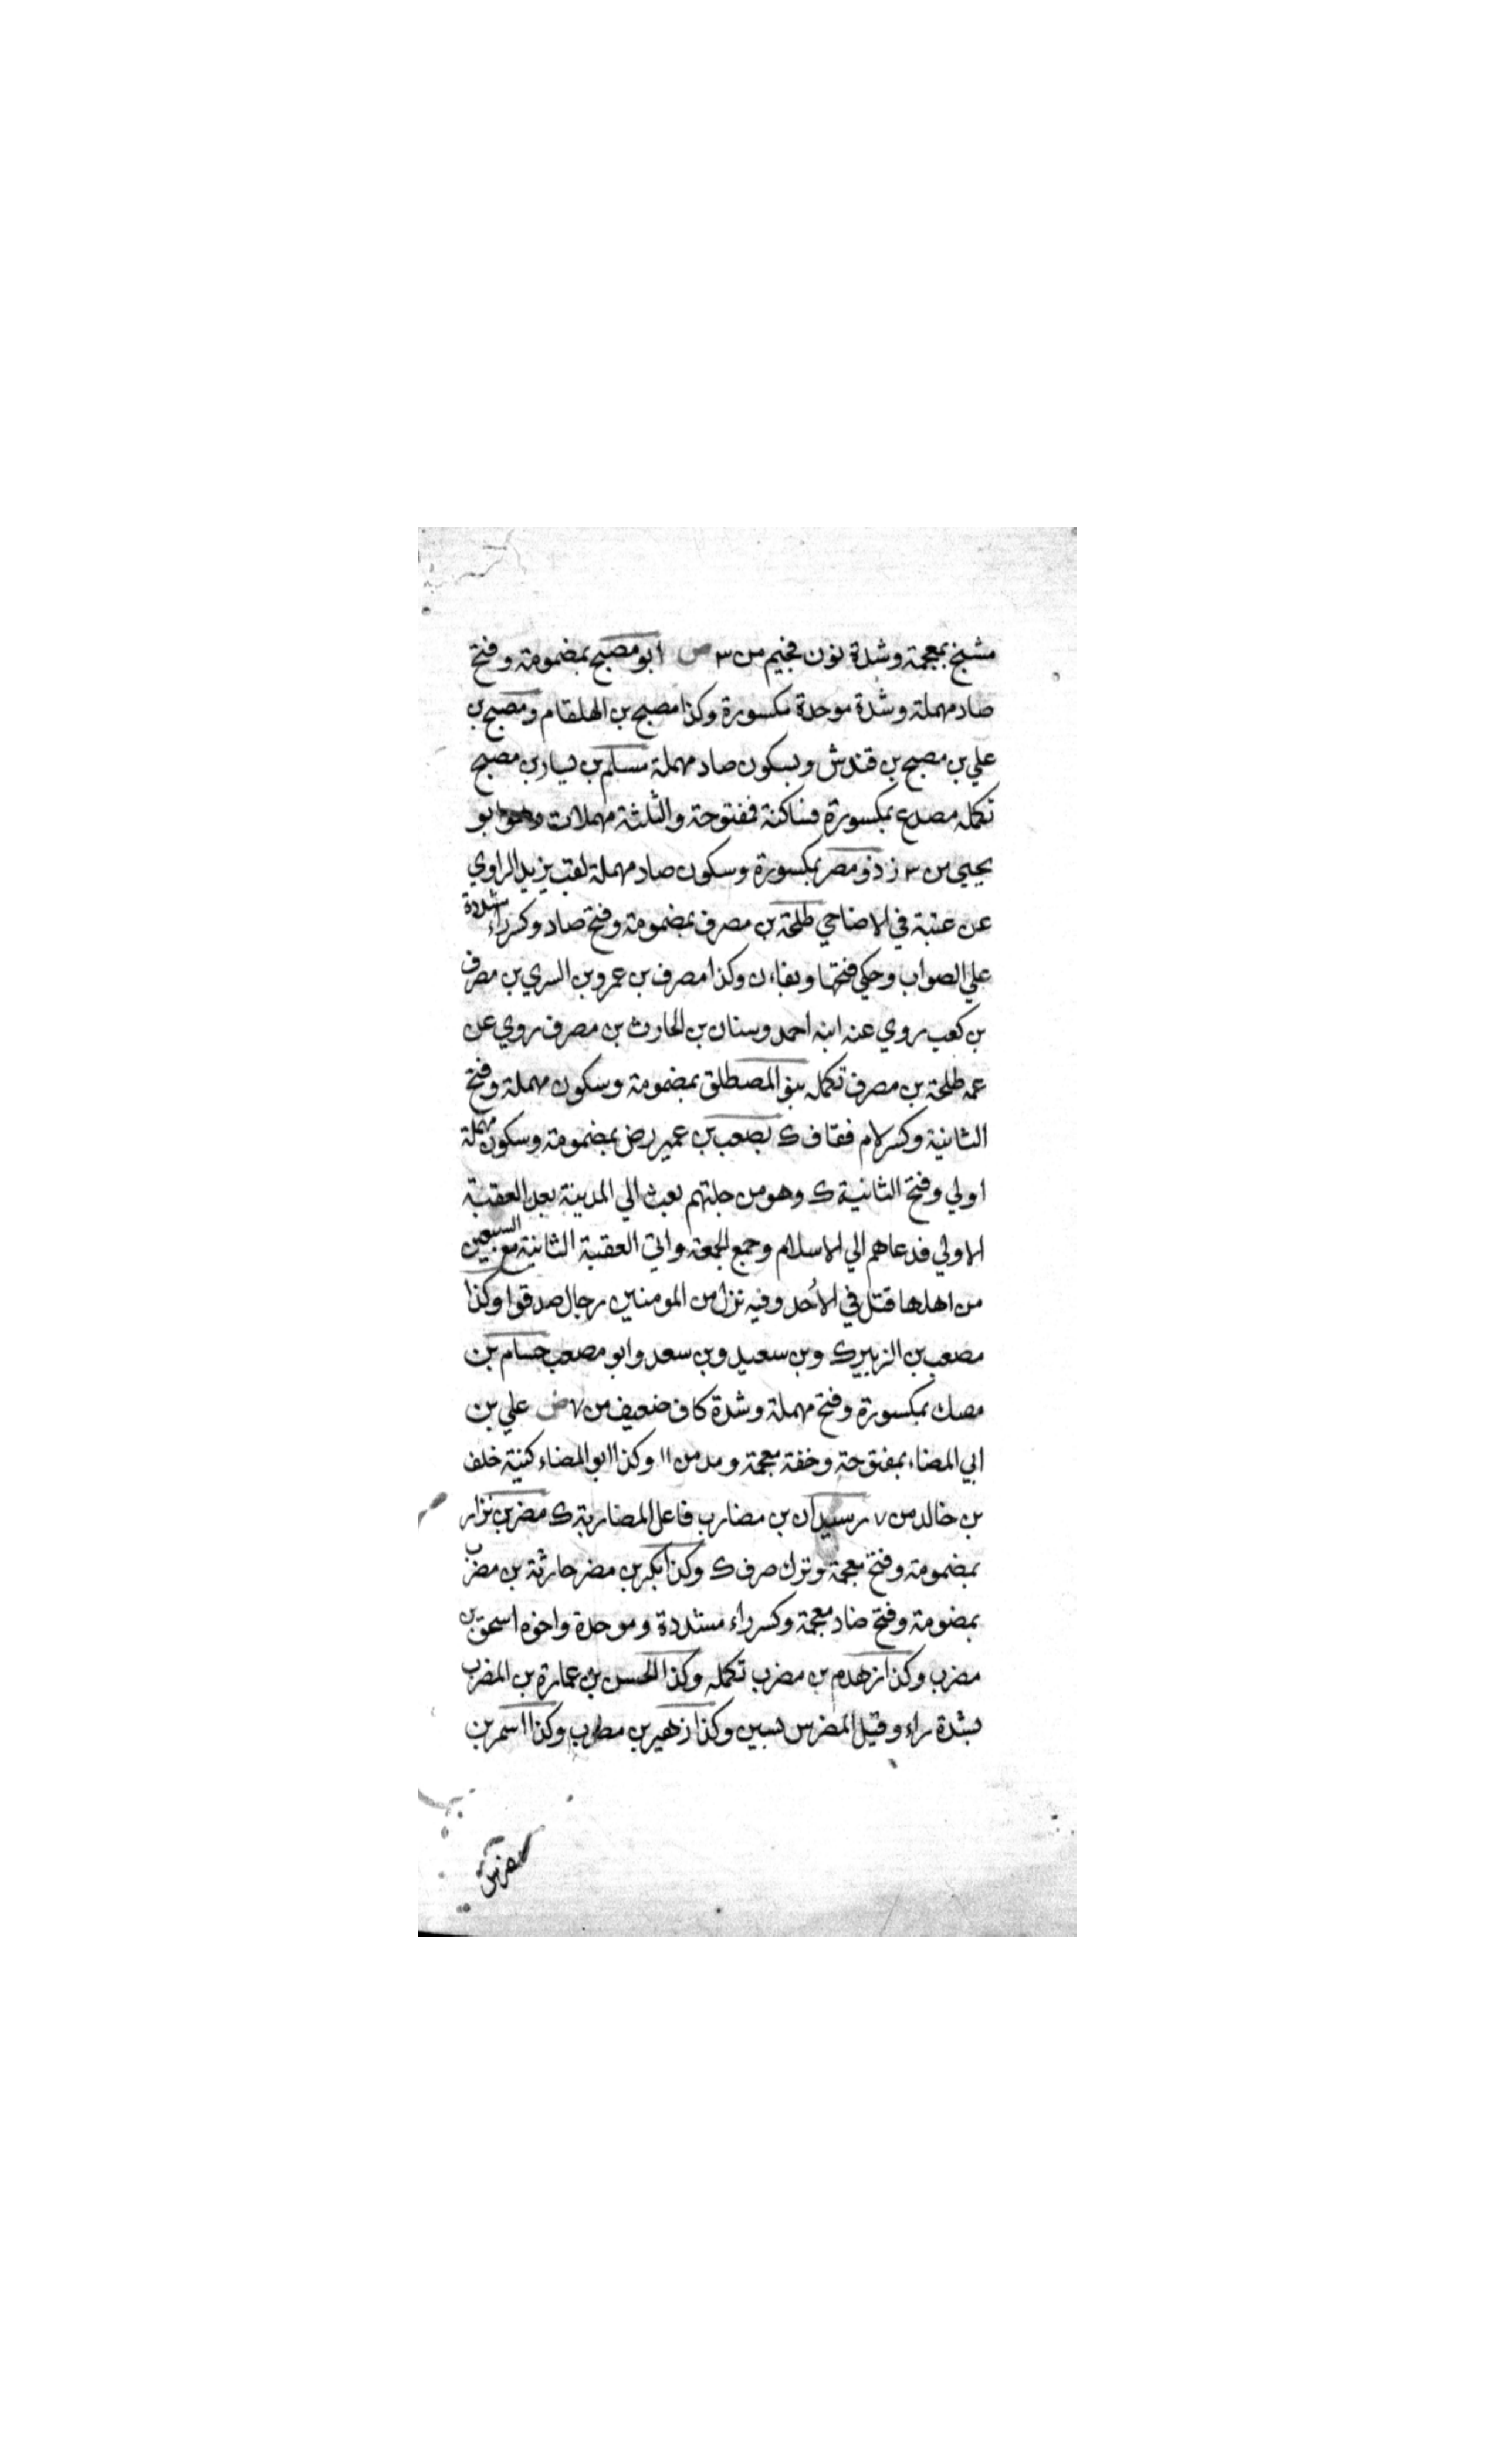 مشنج بمعجمة وشدة نون فجيم من ٣ ص ابو مصبح بمضمومة وفتح
صاد مهملة وشدة موحدة مكسورة وكذا مصبح بن الهلقام ومصبح بن
علي بن مصبح بن قندش وبسكون صاد مهملة مسلم بن يسار بن مصبح
تكمله مصدع بمكسورة فساكنة ففتوحة والثلثة مهملات وهو ابو
يحيى من ٣ ز ذو مصر بمكسورة وسكون صاد مهملة لقب يزيد الراوي
عن عتبة في الاضاحي طلحة بن مصرف بمضمومة وفتح صاد وكسر راء مشددة
علي الصواب وحكي فتحها وبفاء ن وكذا مصرف بن عمرو بن السري بن مصرف
بن كعب روي عنه ابنه احمد وسنان بن الحارث بن مصرف روي عن
عمه طلحة بن مصرف تكمله بنو المصطلق بمضمومة وسكون مهملة وفتح
الثانية وكسر لام فقاف ك مصعب بن عمير رض بمضمومة وسكون مهملة
اولي وفتح الثانية ك وهو من جلتهم بعث الي المدينة بعد العقبة
الاولي فدعاهم الي الاسلام وجمع الجمعة واتي العقبة الثانية مع السبعين
من اهلها قتل في الأحد وفيه نزل من المومنين رجال صدقوا وكذا
مصعب بن الزبير ك وبن سعيد وبن سعد وابو مصعب حسام بن
مصك بمكسورة وفتح مهملة وشدة كاف ضعيف من ٧ ض علي بن
ابي المضاء بمفتوحة وخفة معجمة ومد من ١١ وكذا ابو المضاء كنية خلف
بن خالد من ٧ ر سيدان بن مضارب فاعل المضاربة ك مضر بن نزار
بمضمومة وفتح معجمة وترك صرف ك وكذا بكر بن مضر حارثة بن مضرب
بمضومة وفتح ضاد معجمة وكسر راء مشددة وموحدة واخوه اسحق بن
مضرب وكذا زهدم بن مضرب تكمله وكذا الحسن بن عمارة بن المضرب
بشدة راء وقيل المضرس بسين وكذا زهير بن مضرب وكذا اسمر بن